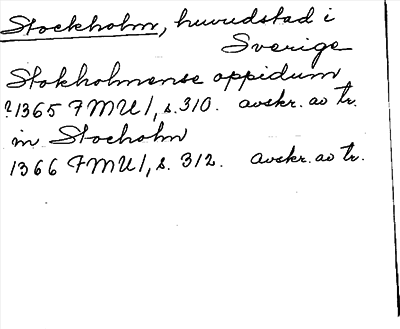 Stockholm, huvudstad i
Sverige
Stokholmense oppidum
?1365 FMU I, s. 310. avskr. av tr.
in Stocholm
1366 FMU I, s. 312. avskr. av tr.